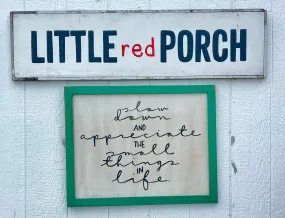 LITTLE red PORCH
slow
down
AND
appreciate
THE
small
things
IN
life